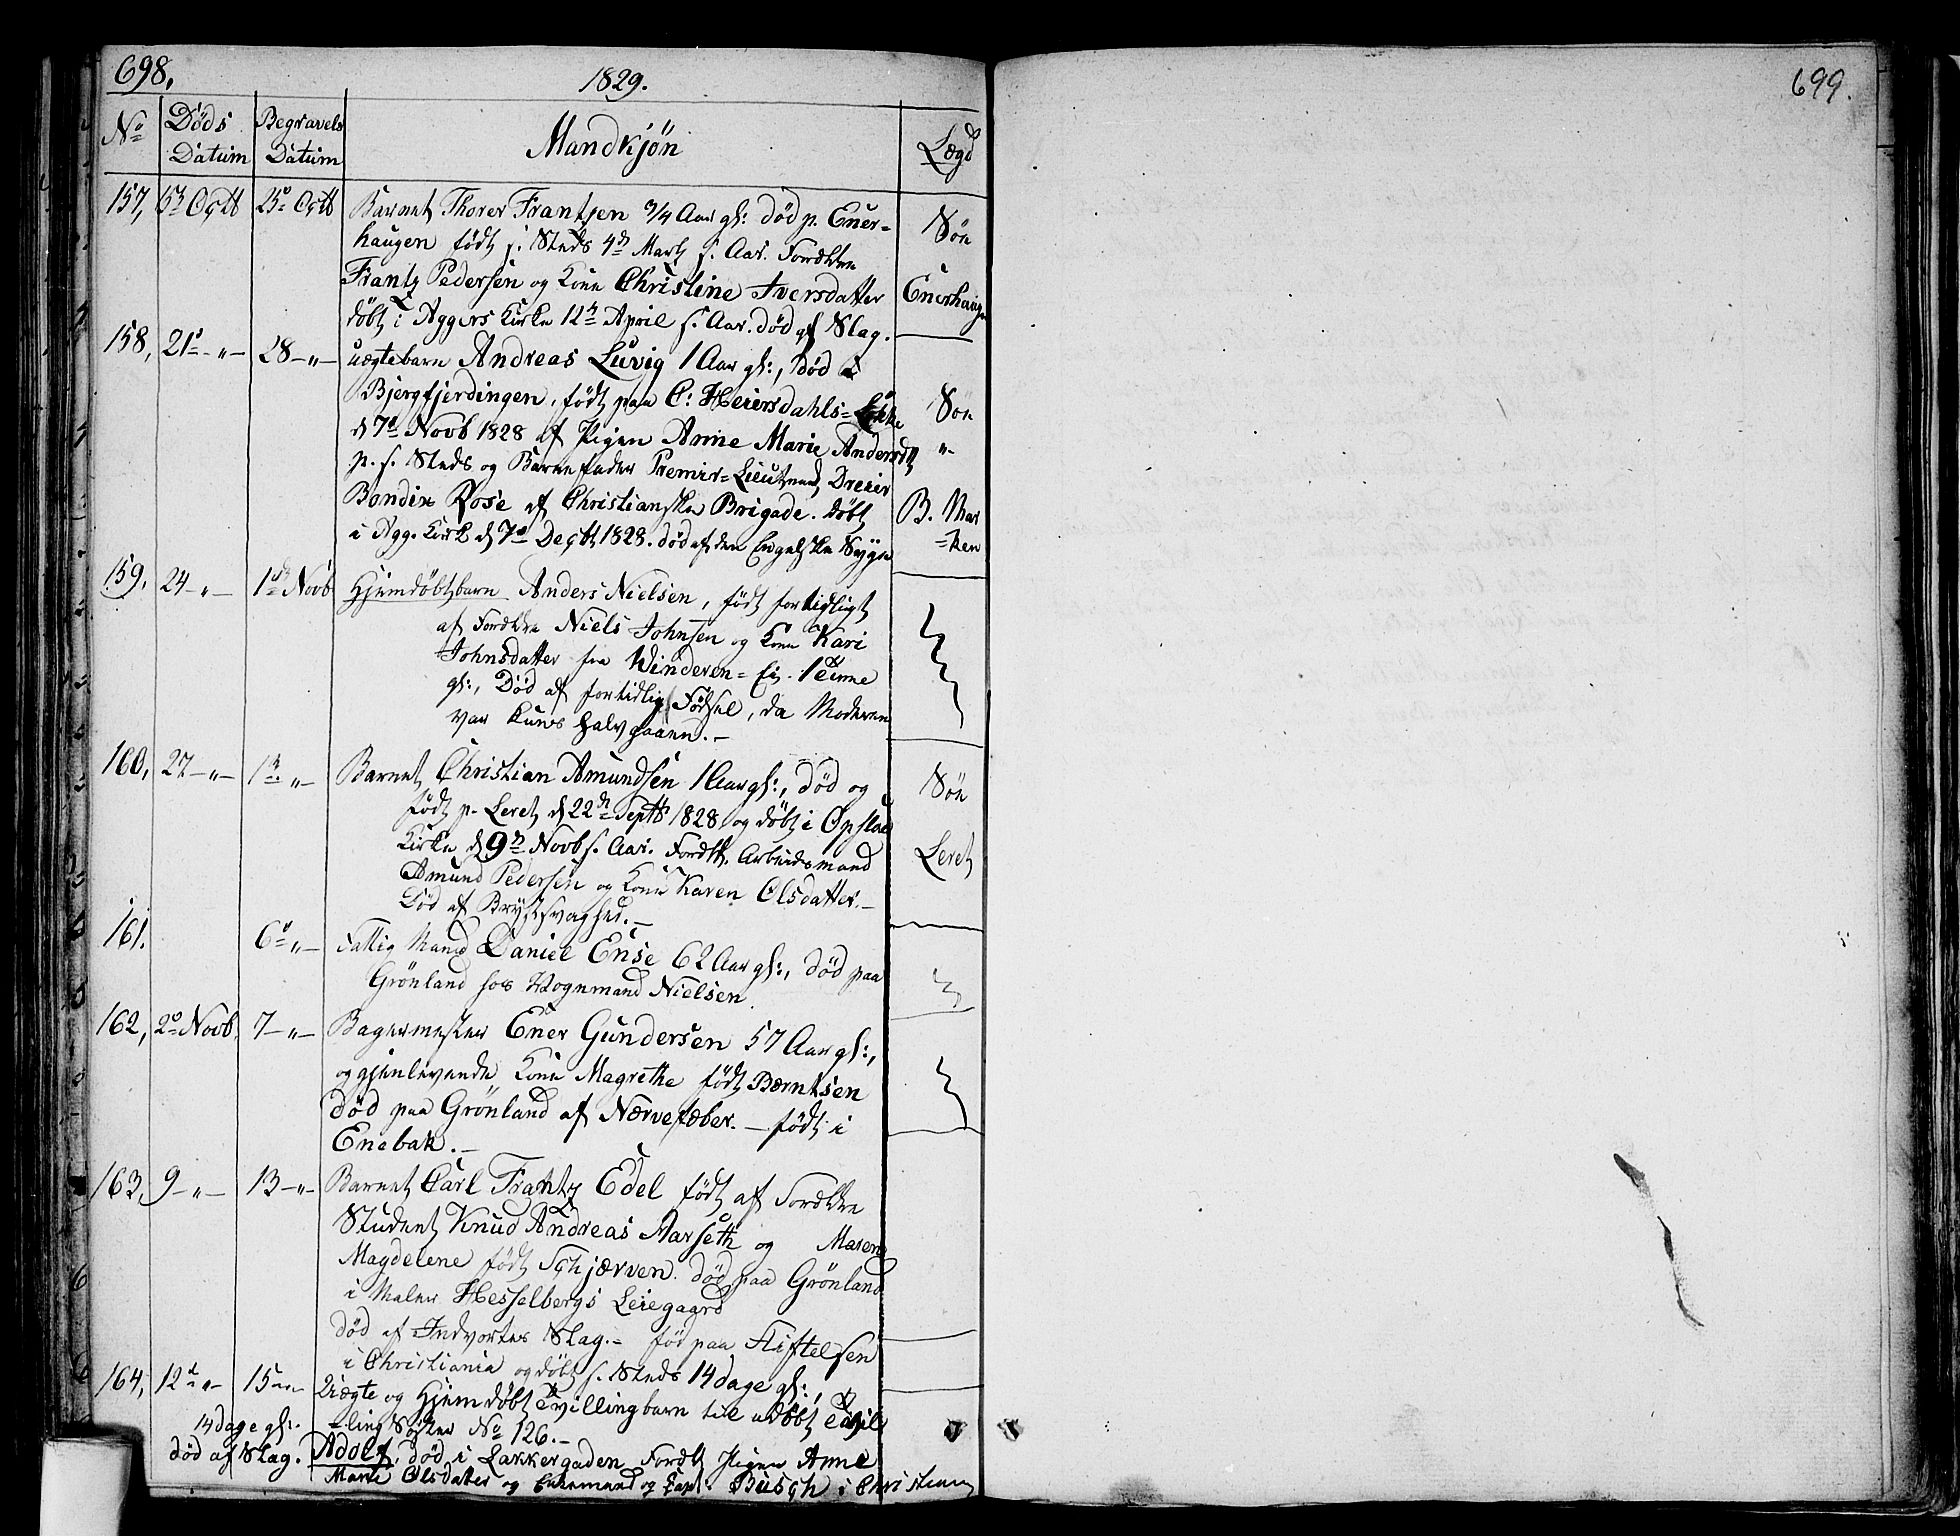 698.
1829.
No
Døds Datum
Begravels Datum
Mandkjøn
Lægd
157, 15de Octb 25de Octb Barnet Thorer Frantzen 3/4 Aar gl: død p. Ener=
haugen født s. Steds 4de Marts s. Aar. Forældre
Frantz Pedersen og Kone Christine Iversdatter
døbt i Aggers Kirke 12te April s. Aar. død af Slag.
Søn
Enerhaugen
158, 21de -"- 28 -"- uægtebarn Andreas Luvig 1 Aar gl:, død i
Bjergfjerdingen, født paa C: Heiersdahls=Løkke
d 7de Novb 1828 af Pigen Anne Marie Andersdtt
p. s. Steds og Barnefader Premir=Lieutnant Dreier
Bondix Rose af Christianske Brigade. døbt
i Agg. Kirke d 7de Decbr 1828. død af den Engelske Syge
Søn
"-
B. Mar
=ken
159, 24 -"- 1ste Novb Hjemdøbtbarn Anders Nielsen, født fortidligt
af Forældre Niels Johnsen og Kone Kari
Johnsdatter fra Winderen= Ei. 1 Time
gl:, Død af fortidlig Fødsel, da Moderen
var kuns halv gaaen. -
160, 27 -"- 1ste -"- Barnet Christian Amundsen 1 Aar gl:, død og
født p. Leret d 22de Septb 1828 og døbt i Opsloe
Kirke d 9de Novb s. Aar. Forældr. Arbeidsmand
Amund Pedersen og Kone Karen Olsdatter. -
Død af Brystsvaghed. -
Søn
Leret
161. 6te -"- Fattig Mand Daniel Ense 62 Aar gl:, død paa
Grønland hos Vognmand Nielsen
162, 2de Novb 7 -"- Bagermester Ener Gundersen 57 Aar gl:,
og gjenlevende Kone Magrethe født Bærntsen
død paa Grønland af Nærvefæber. - født i
Enebak. -
163, 9 -"- 13 -"- Barnet Carl Frantz Edel født af Forældre
Student Knud Andreas Aarseth og Maren
Magdelene født Schjærven. død paa Grønland
i Maler Hesselbergs Leiegaard
død af Indvortes Slag. - fød paa Stiftelsen
i Christiania og døbt s. Steds 14 dage gl:,
164, 12te -"- 15 -"- Uægte og Hjemdøbt Tvillingbarn til udøbt Tvil
=ling Søster No 126. -
14 dage gl:.
død af Slag. Adolf, død i Lakkergaden Forældr Pigen Anne
Marie Olsdatter og Enkemand og Capt. Busch i Christiania
699.